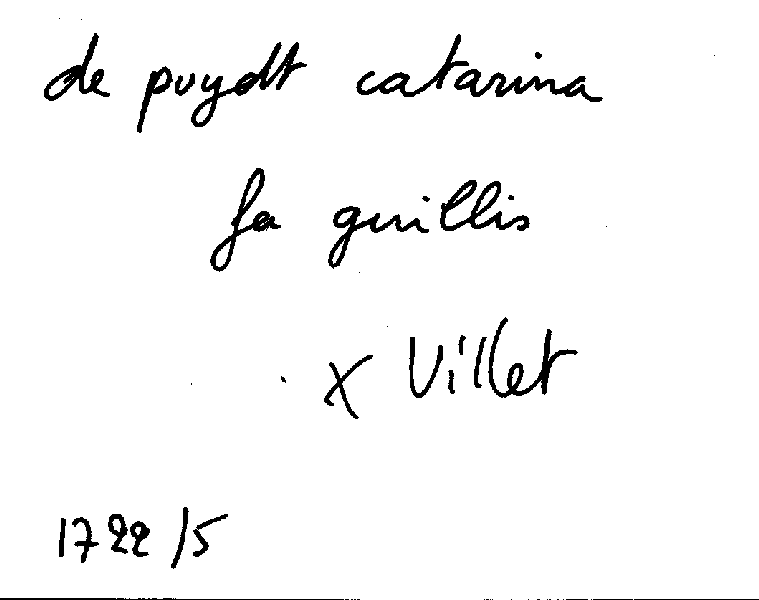 de puydt catarina
fa guillis
x Villet
1722/5